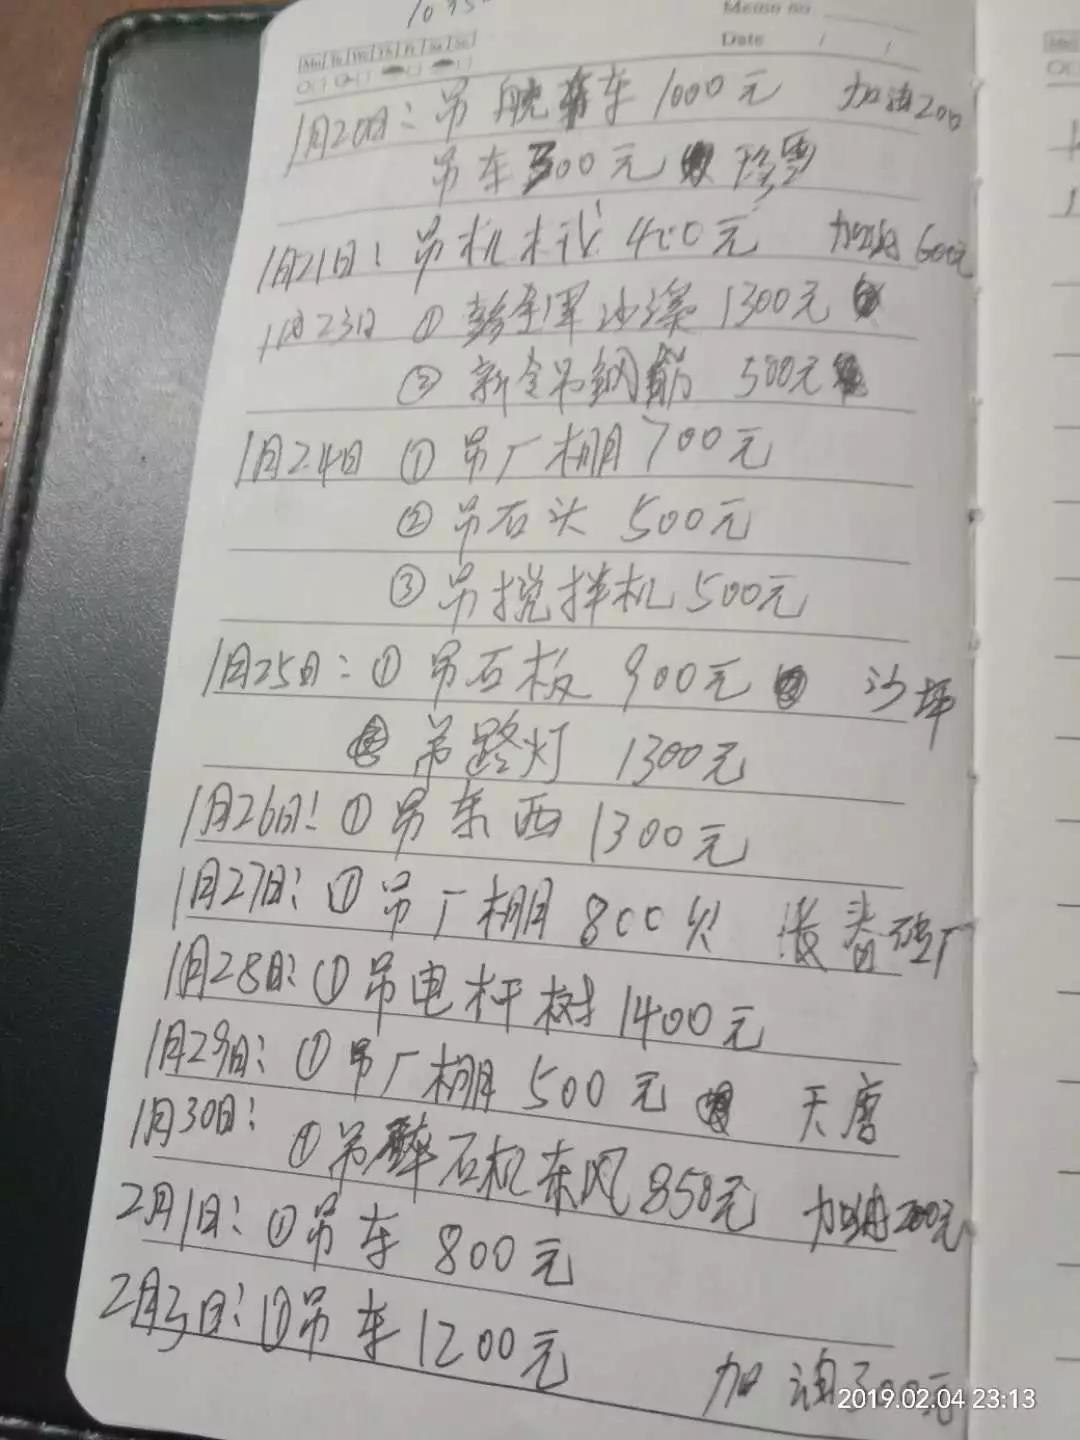 1035
Memo no
Date / /
Mo Tu We Th Fr Sa Su
1月20日：吊 车 1000元 加油200
吊车500元
1月21日：吊机 400元 加油600元
1月23日 ① 沙溪 1300元
② 新全吊钢筋 500元
1月24日 ① 吊厂棚700元
② 吊石头 500元
③ 吊搅拌机500元
1月25日：① 吊石板 900元 沙坪
吊路灯 1300元
1月26日：① 吊东西 1300元
1月27日：① 吊厂棚 800 砖厂
1月28日：① 吊电杆树 1400元
1月29日：① 吊厂棚 500元 天唐
1月30日：① 吊碎石机东风850元 加油200元
2月1日：① 吊车 800元
2月3日：① 吊车1200元
加油300元
2019.02.04 23:13